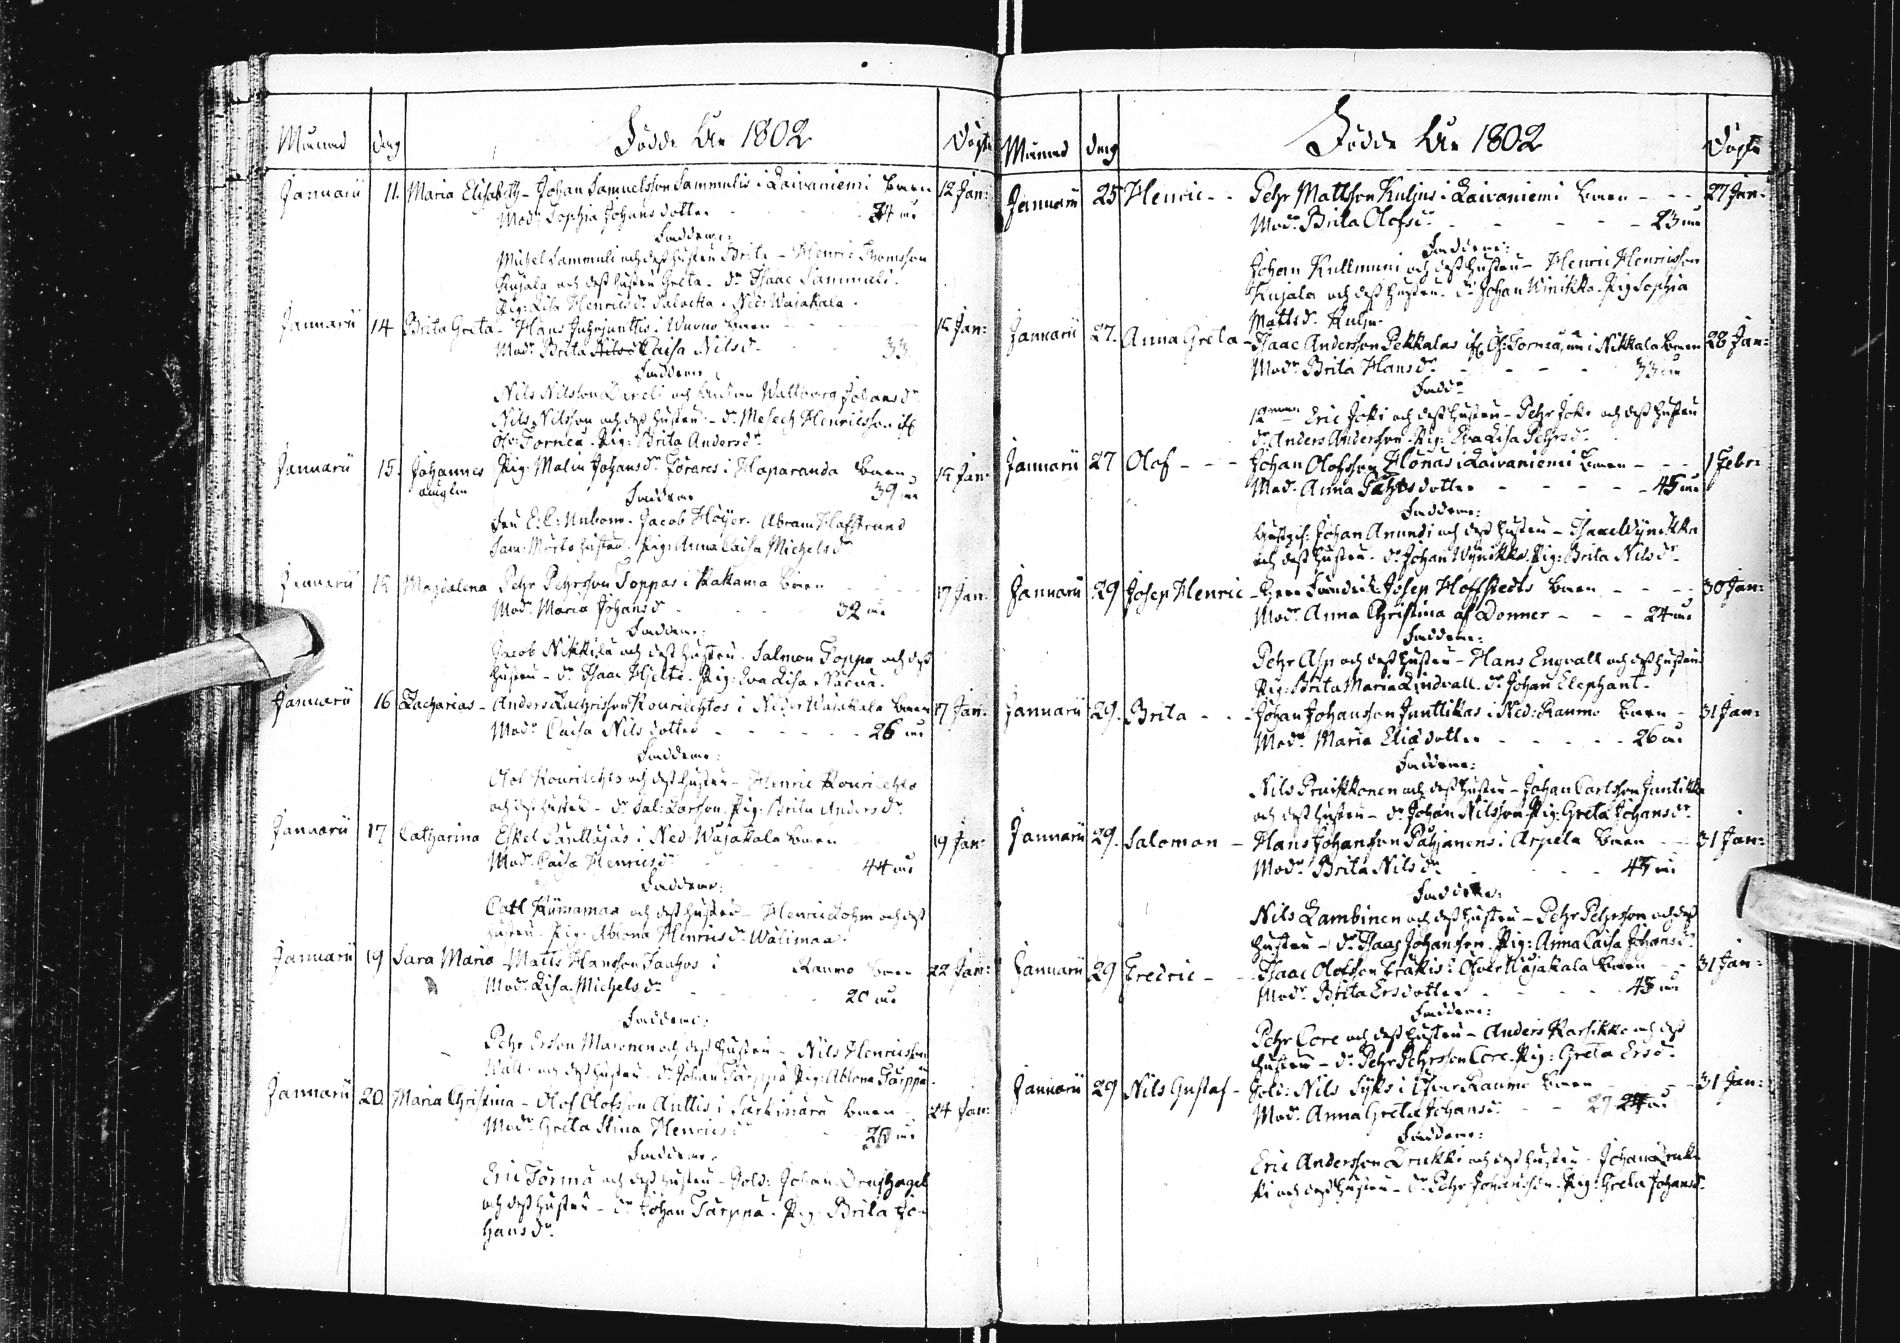 Månad dag Födde År 1802 Döpte
Januarii 11. Maria Elisabeth - Johan Samuelsson Sammulis i Laivaniemi Barn 12 Jan:
Modr Sophia Johans dotter - - - 34 år
Faddrar:
Michel Sammuli och dess hustru Brita - Henric Thomsson
Kujala och dess hustru Greta. dr Isaac Sammuli.
Pig: Lisa Henrics dr
Januarii 14 Brita Greta - Hans Juhojunttis i Wuono Barn - - 15 Jan:
Modr Brita Caisa Nils dr - - 33
Faddrar
Nils Nilsson Laveli och Wallborg Johans dr
Nils Nilsson och dess hustru - dr Mesech Henricsson
Öfr: Torneå. Pig: Brita Anders dr
Januarii 15. Johannes Pig: Malin Johans dr i Haparanda Barn 15 Jan:
oäugten 39 år
Faddrar
Fru Jacob Höijer. Abram Hoffstrand
hustru. Pig: Anna Caisa Michels dr
Januarii 15 Magdalena Pehr Pehrsson Toppas i Kakama Barn 17 Jan:
Modr Maria Johans dr - - 32 år
Faddrar:
Jacob Nikkilä och dess hustru. Salmon Toppo och dess
hustru - dr Isaac Hjelte. Pig: Eva Lisa
Januarii 16 Zacharias - Anders Zachrisson Kourilehtos i Neder Wojakala Barn 17 Jan:
Modr Caisa Nils dotter - - - 26 år
Faddrar:
Olof Kourilehto och dess hustru - Henric Kourilehto
och dess hustru - dr Sal: Larsson. Pig: Brita Anders dr
Januarii 17 Catharina Eskel i Ned: Wojakala Barn 19 Jan:
Modr Caisa Henrics dr - - 44 år
Faddrar:
Carl och dess hustru - Henric Lohm och dess
hustru. Pig: Ablona Henrics dr Wälimaa.
Januarii 19 Sara Maria Matts Hansson i Raumo Barn 22 Jan:
Modr Lisa Michels dr - - 20 år
Faddrar:
Pehr Ersson Maronen och dess hustru - Nils Henricsson
och dess hustru. dr Johan Tärppä Pig: Ablona Tärppä.
Januarii 20. Maria Christina - Olof Olofsson Anttis i Särkinärä Barn 24 Jan:
Modr Greta Stina Henrics dr
Faddrar:
Eric Törmä och dess hustru - Sold: Johan
och dess hustru - dr Johan Tärppä. Pig: Brita Jo-
hans dr
Månad dag Födde År 1802 Döpte
Januarii 25 Henric - - Pehr Mattsson Kuljus i Laivaniemi Barn - - 27 Jan:
Modr Brita Olofs dr - - - 23 år
Faddrar:
Johan Kullmuni och dess hustru - Henric Henricsson
Kujala och dess hustru. dr Johan Winikka. Pig Sophia
Matts dr Kulju.
Januarii 27. Anna Greta - Isaac Andersson Pekkalas if. Öf: Torneå, nu i Nikkala Barn 28 Jan:
Modr Brita Hans dr - - - 33 år
Fadd
Eric Joki och dess hustru - Pehr Joki och dess hustru
dr Anders Andersson. Pig: Eva Lisa Pehrs dr
Januarii 27 Olof - - - Johan Olofsson Honas i Laivaniemi Barn - - 1 Febr:
Modr Anna Pehrs dotter - - - 45 år
Faddrar:
Johan Anundi och dess hustru - Isaac Wynikka
och dess hustru. dr Johan Wynikka. Pig: Brita Nils dr
Januarii 29 Josep Henric - Josep Hoffstedts Barn - - - 30 Jan:
Modr Anna Christina af Donner - - - 24 år
Faddrar:
Pehr Asp och dess hustru - Hans Engvall och dess hustru
Pig: Brita Maria Lindvall. dr Johan Elephant.
Januarii 29. Brita - - - Johan Johansson Junttikas i Ned: Raumo Barn - 31 Jan:
Modr Maria Elias dotter - - - 26 år
Faddrar:
Nils Pruikkonen och dess hustru - Johan Carlsson Juntikka
och dess hustru - dr Johan Nilsson. Pig: Greta Johans dr
Januarii 29. Salomon - Hans Johansson Pahjanens i Arpela Barn - - 31 Jan:
Modr Brita Nils dr - - - 45 år
Faddrar:
Nils Lambinen och dess hustru - Pehr Pehrsson och dess
hustru - dr Isaac Johansson. Pig: Anna Caisa Johans dr
Januarii 29 Fredric - - Isaac Olofsson i Öfver Wojakala Barn - - 31 Jan:
Modr Brita Ersdotter - - - 45 år
Faddrar:
Pehr Core och dess hustru - Anders Karsikko och dess
hustru - dr Pehr Pehrsson Core. Pig: Greta Ers dr
Januarii 29 Nils Gustaf - Sold: Nils Syks i Öfver Raumo Barn - 31 Jan:
Modr Anna Greta Johans dr - - 27 år
Faddrar:
Eric Andersson och dess hustru - Johan
och dess hustru - dr Pehr Johansson. Pig: Greta Johans dr